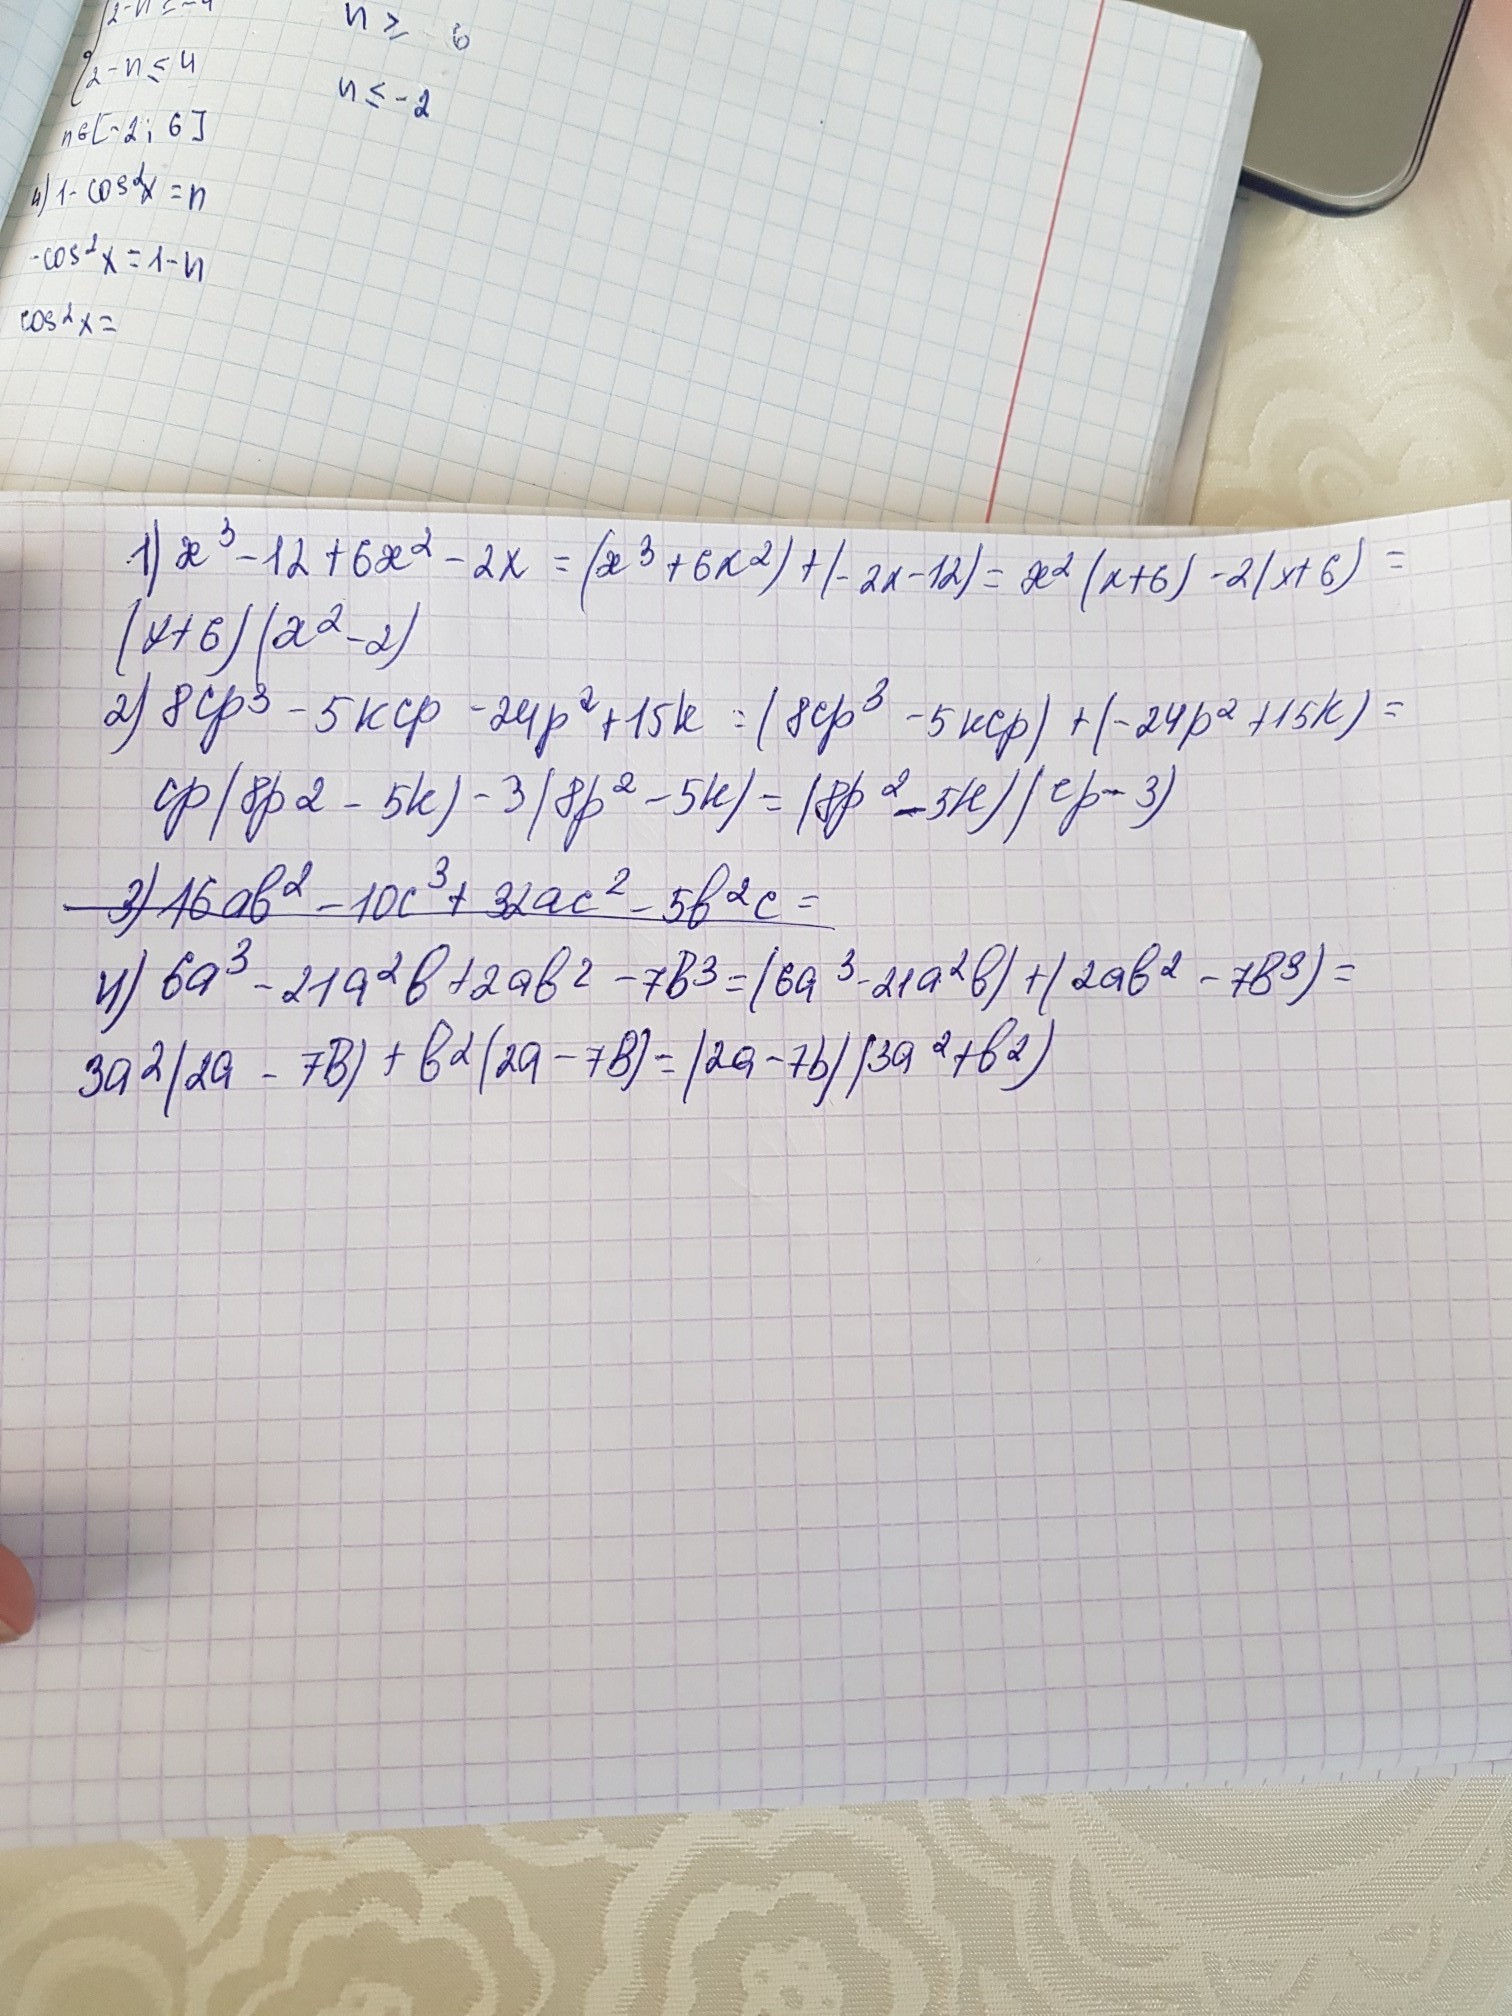 2-n ≤ -4
2-n ≤ 4
n ≥ - 6
n ≤ -2
n∈[-2; 6]
4) 1-cos²x = n
-cos²x = 1-n
cos²x =
1) x³ -12 + 6x² - 2x = (x³ + 6x²) + (-2x-12) = x² (x+6) -2(x+6) =
(x+6)(x²-2)
2) 8cp³ - 5kcp - 24p² + 15k = (8cp³ - 5kcp) + (-24p² + 15k) =
cp(8p2 - 5k) - 3(8p² - 5k) = (8p² - 5k)(cp - 3)
3) 16ab² - 10c³ + 32ac² - 5b²c =
4) 6a³ - 21a²b + 2ab² - 7b³ = (6a³ - 21a²b) + (2ab² - 7b³) =
3a²(2a - 7b) + b²(2a - 7b) = (2a - 7b)(3a² + b²)